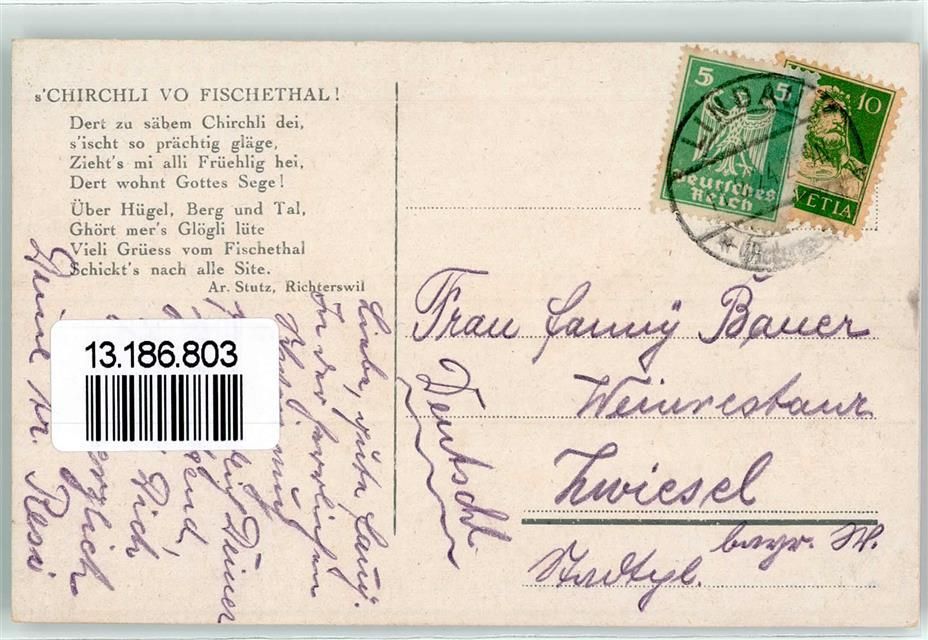 s'CHIRCHLI VO FISCHETHAL!
Dert zu säbem Chirchli dei,
s'ischt so prächtig gläge,
Zieht's mi alli Früehlig hei,
Dert wohnt Gottes Sege!
Über Hügel, Berg und Tal,
Ghört mer's Glögli lüte
Vieli Grüess vom Fischethal
Schickt's nach alle Site.
Ar. Stutz, Richterswil
5 5
Deutsches
Reich
10
VETIA
LINDAU
Frau Fanny Bauer
Weinrestaur
Zwiesel
bayr. W.
Stadtpl.
Deutschl.
Liebe, gute Fanny.
In der herrlichen
Dich
Deine
13.186.803